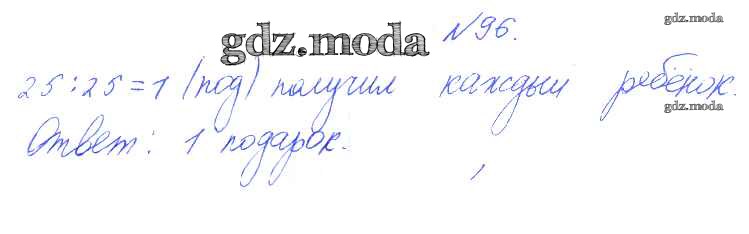 gdz.moda
gdz.moda
№96.
25:25=1 (под) получил каждый ребёнок.
gdz.moda
Ответ: 1 подарок.